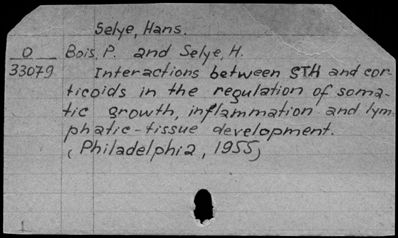 Selye, Hans.
O Bois, P. and Selye, H.
33079 Interactions between STH and cor-
ticoids in the regulation of soma-
tic growth, inflammation and lym-
phatic-tissue development.
(Philadelphia, 1955)
1